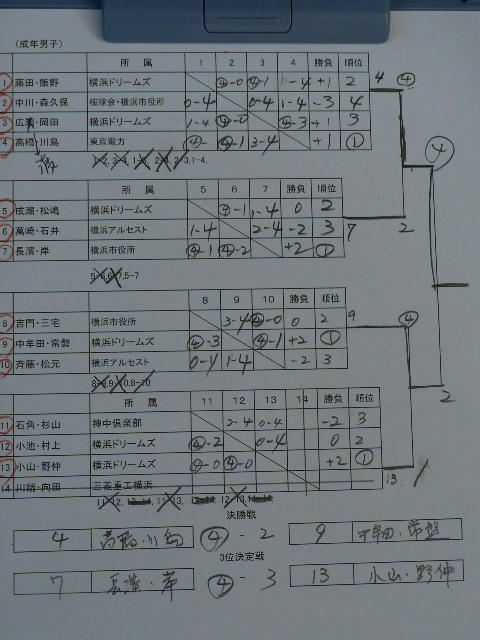 (成年男子)
所 属 1 2 3 4 勝負 順位
1 藤田・飯野 横浜ドリームズ ④-0 ④-1 1-4 +1 2
2 中川・森久保 桜球会・横浜市役所 0-4 0-4 1-4 -3 4
3 広瀬・岡田 横浜ドリームズ 1-4 ④-0 ④-3 +1 3
4 高橋・川島 東京電力 ④- ④-1 3-4 +1 ①
4 ④
所 属 5 6 7 勝負 順位
5 成瀬・松嶋 横浜ドリームズ ③-1 1-4 0 2
6 萬崎・石井 横浜アルセスト 1-4 2-4 -2 3
7 長濱・岸 横浜市役所 ④-1 ④-2 +2 ①
5-6,6-7,5-7
7 2
④
所 属 8 9 10 勝負 順位
8 吉門・三宅 横浜市役所 3-4 ④-0 0 2
9 中牟田・常磐 横浜ドリームズ ④-3 ④-1 +2 ①
10 斉藤・松元 横浜アルセスト 0-4 1-4 -2 3
8-9,9-10,8-10
9 ④
2
所 属 11 12 13 14 勝負 順位
11 石角・杉山 神中倶楽部 2-4 0-4 -2 3
12 小池・村上 横浜ドリームズ ④-2 0-4 0 2
13 小山・野仲 横浜ドリームズ ④-0 ④-0 +2 ①
14 川端・向田 三菱重工横浜
13 1
決勝戦
4 高橋・川島 ④-2 9 中牟田・常磐
3位決定戦
7 長濱・岸 ④-3 13 小山・野仲